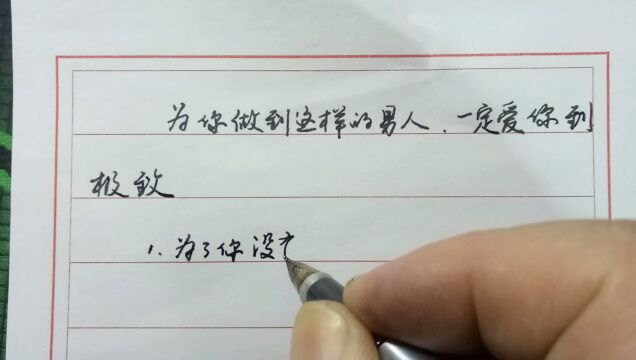 为你做到这样的男人、一定爱你到
极致
1.为了你没